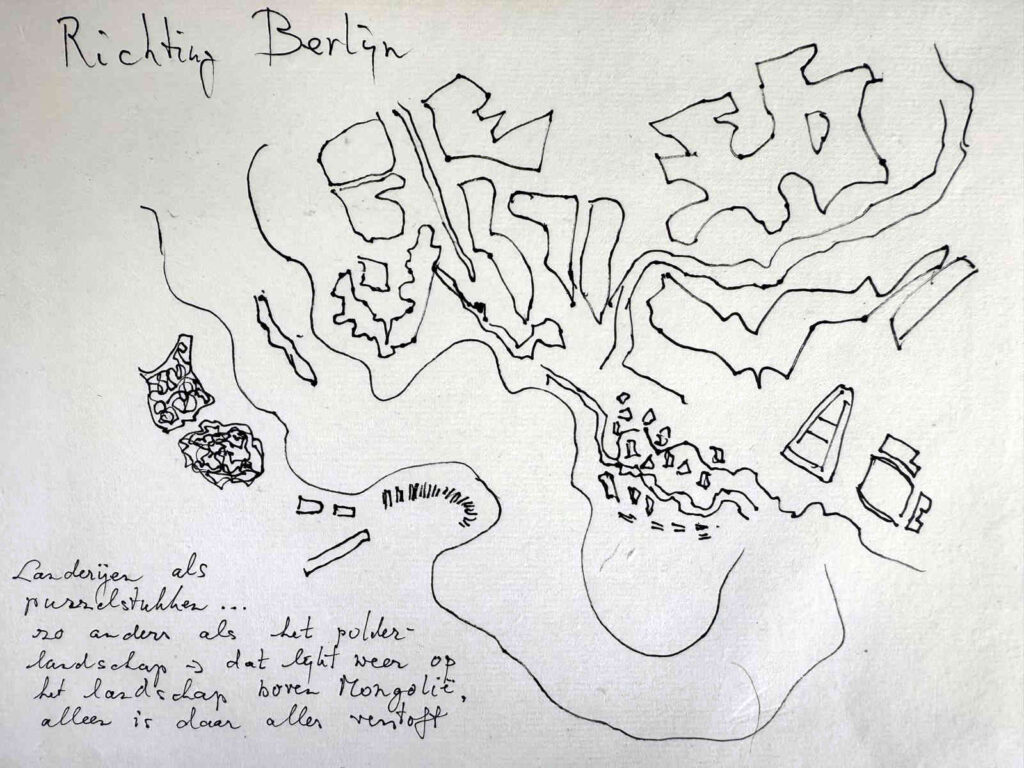 Richting Berlijn
Landerijen als
puzzelstukken ...
zo anders als het polder-
landschap → dat lijkt weer op
het landschap boven Mongolië,
alleen is daar alles verstoft